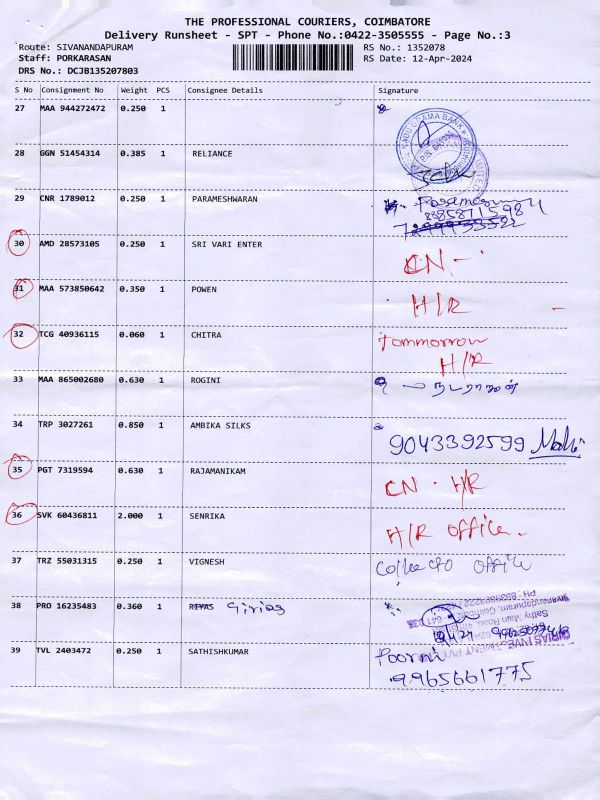 THE PROFESSIONAL COURIERS, COIMBATORE
Delivery Runsheet - SPT - Phone No.:0422-3505555 - Page No.:3
Route: SIVANANDAPURAM RS No.: 1352078
Staff: PORKARASAN RS Date: 12-Apr-2024
DRS No.: DCJB135207803
S No Consignment No Weight PCS Consignee Details Signature
27 MAA 944272472 0.250 1
28 GGN 51454314 0.385 1 RELIANCE
29 CNR 1789012 0.250 1 PARAMESHWARAN
30 AMD 28573105 0.250 1 SRI VARI ENTER CN -
31 MAA 573850642 0.350 1 POWEN H/R
32 TCG 40936115 0.060 1 CHITRA Tommorrow
H/R
33 MAA 865002680 0.630 1 ROGINI
34 TRP 3027261 0.850 1 AMBIKA SILKS 9043392599
35 PGT 7319594 0.630 1 RAJAMANIKAM CN . H/R
36 SVK 60436811 2.000 1 SENRIKA H/R office.
37 TRZ 55031315 0.250 1 VIGNESH office
38 PRO 16235483 0.360 1 RIYAS Girias
Sathy Main Road,
Sivanandapuram,
39 TVL 2403472 0.250 1 SATHISHKUMAR Poorni
9965661775